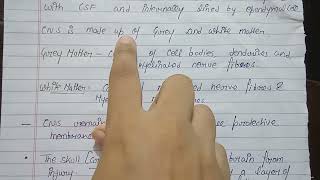 with CSF and internally lined by ependymal
CNS is made up of Grey and white matter
Grey Matter - of cell bodies, dendrites and
myelinated nerve fibres.
White Matter - nerve fibres &
CNS remain protective
membrane
The skull brain from
injury. a layer of